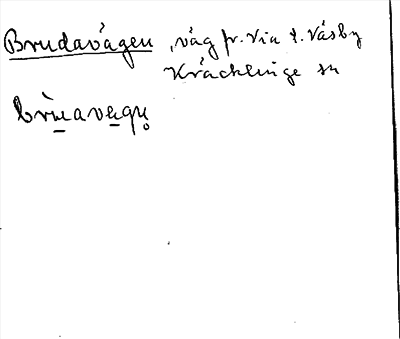 Brudavägen, väg fr. Via t. Väsby
Kräcklinge sn